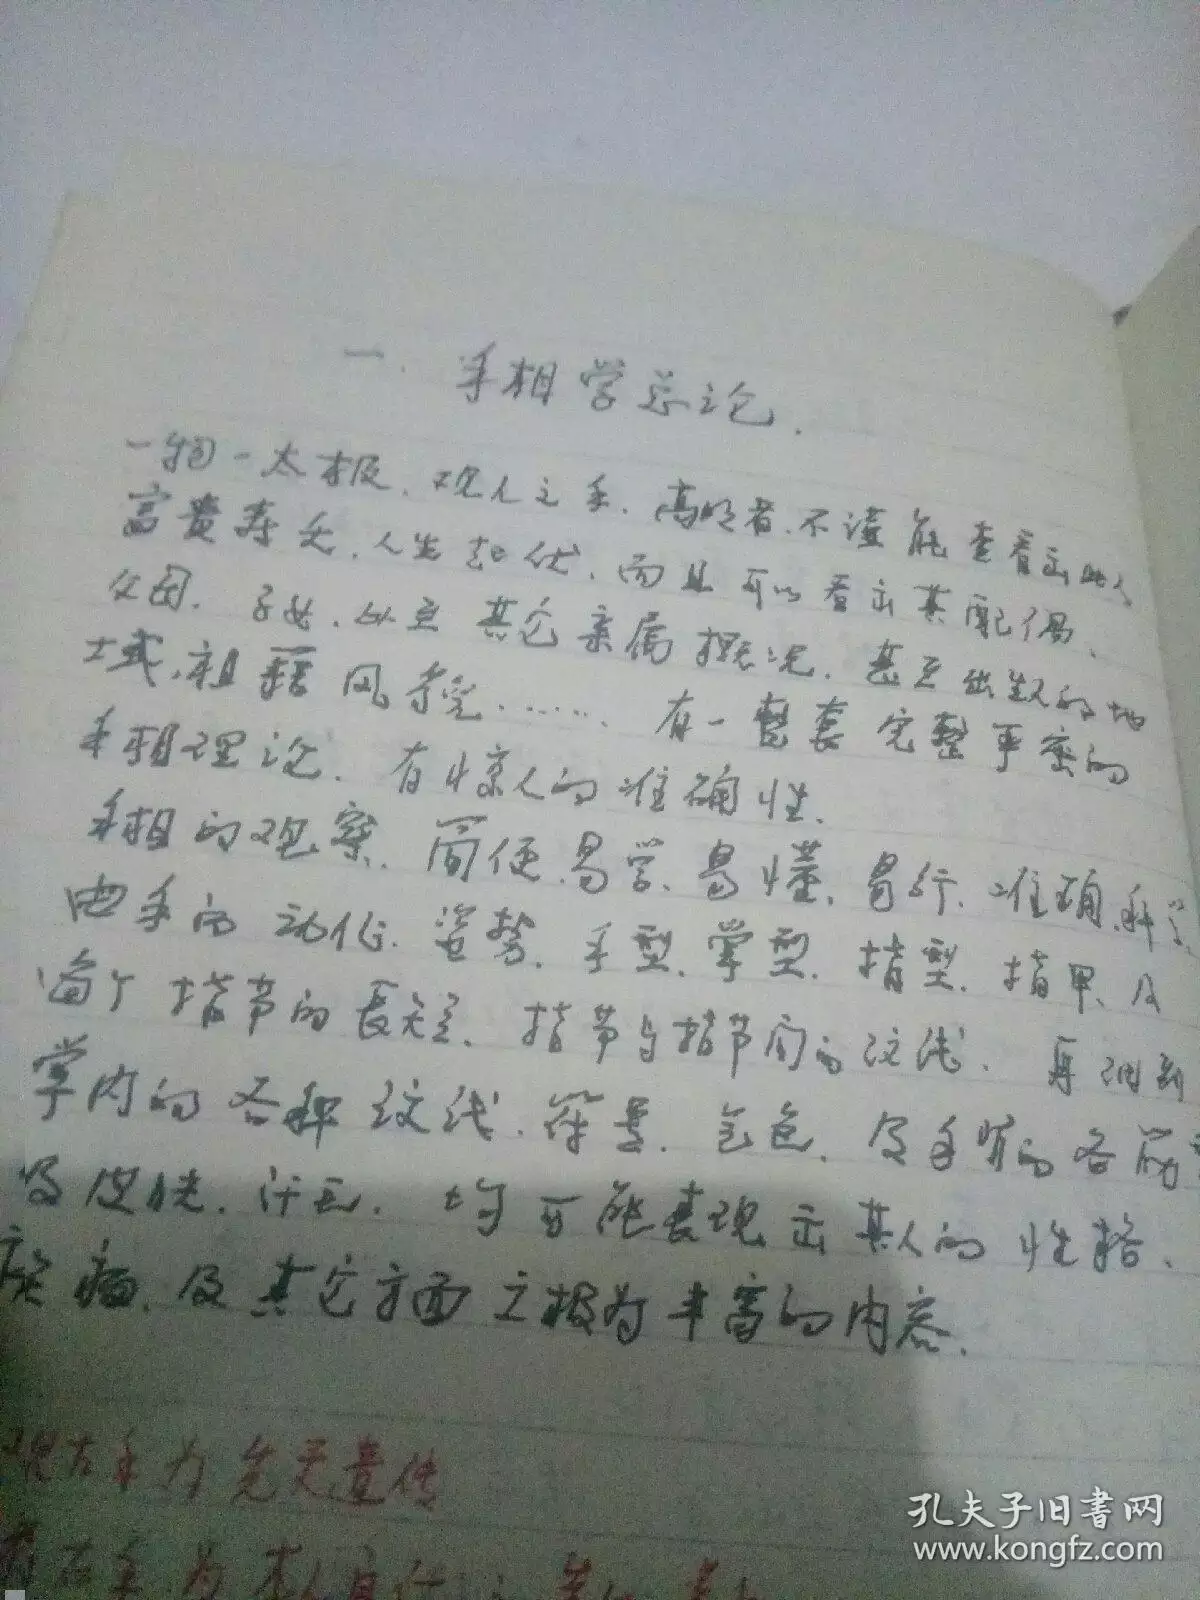 一. 手相学总论.
一物一太极、观人之手、高明者、不谨能查看出此人
富贵寿夭、人生起伏、而且可以看出其配偶、
父母、子女、以至其它亲属概况、甚至出生的地
域、祖籍风貌…… 有一整套完整严密的
手相理论、有惊人的准确性.
手相的观察、简便、易学、易懂、易行、准确、科学、
由手的动作、姿势、手型、掌型、指型、指甲、及
每个指节的長短、指节与指节间的纹线、再细到
掌内的各种纹线、符号、气色、及手背的各筋
及皮肤、汗毛、均可能表现出其人的性格、
疾病、及其它方面之极为丰富的内容.
观左手为先天遗传
右手为本人
孔夫子旧书网
www.kongfz.com